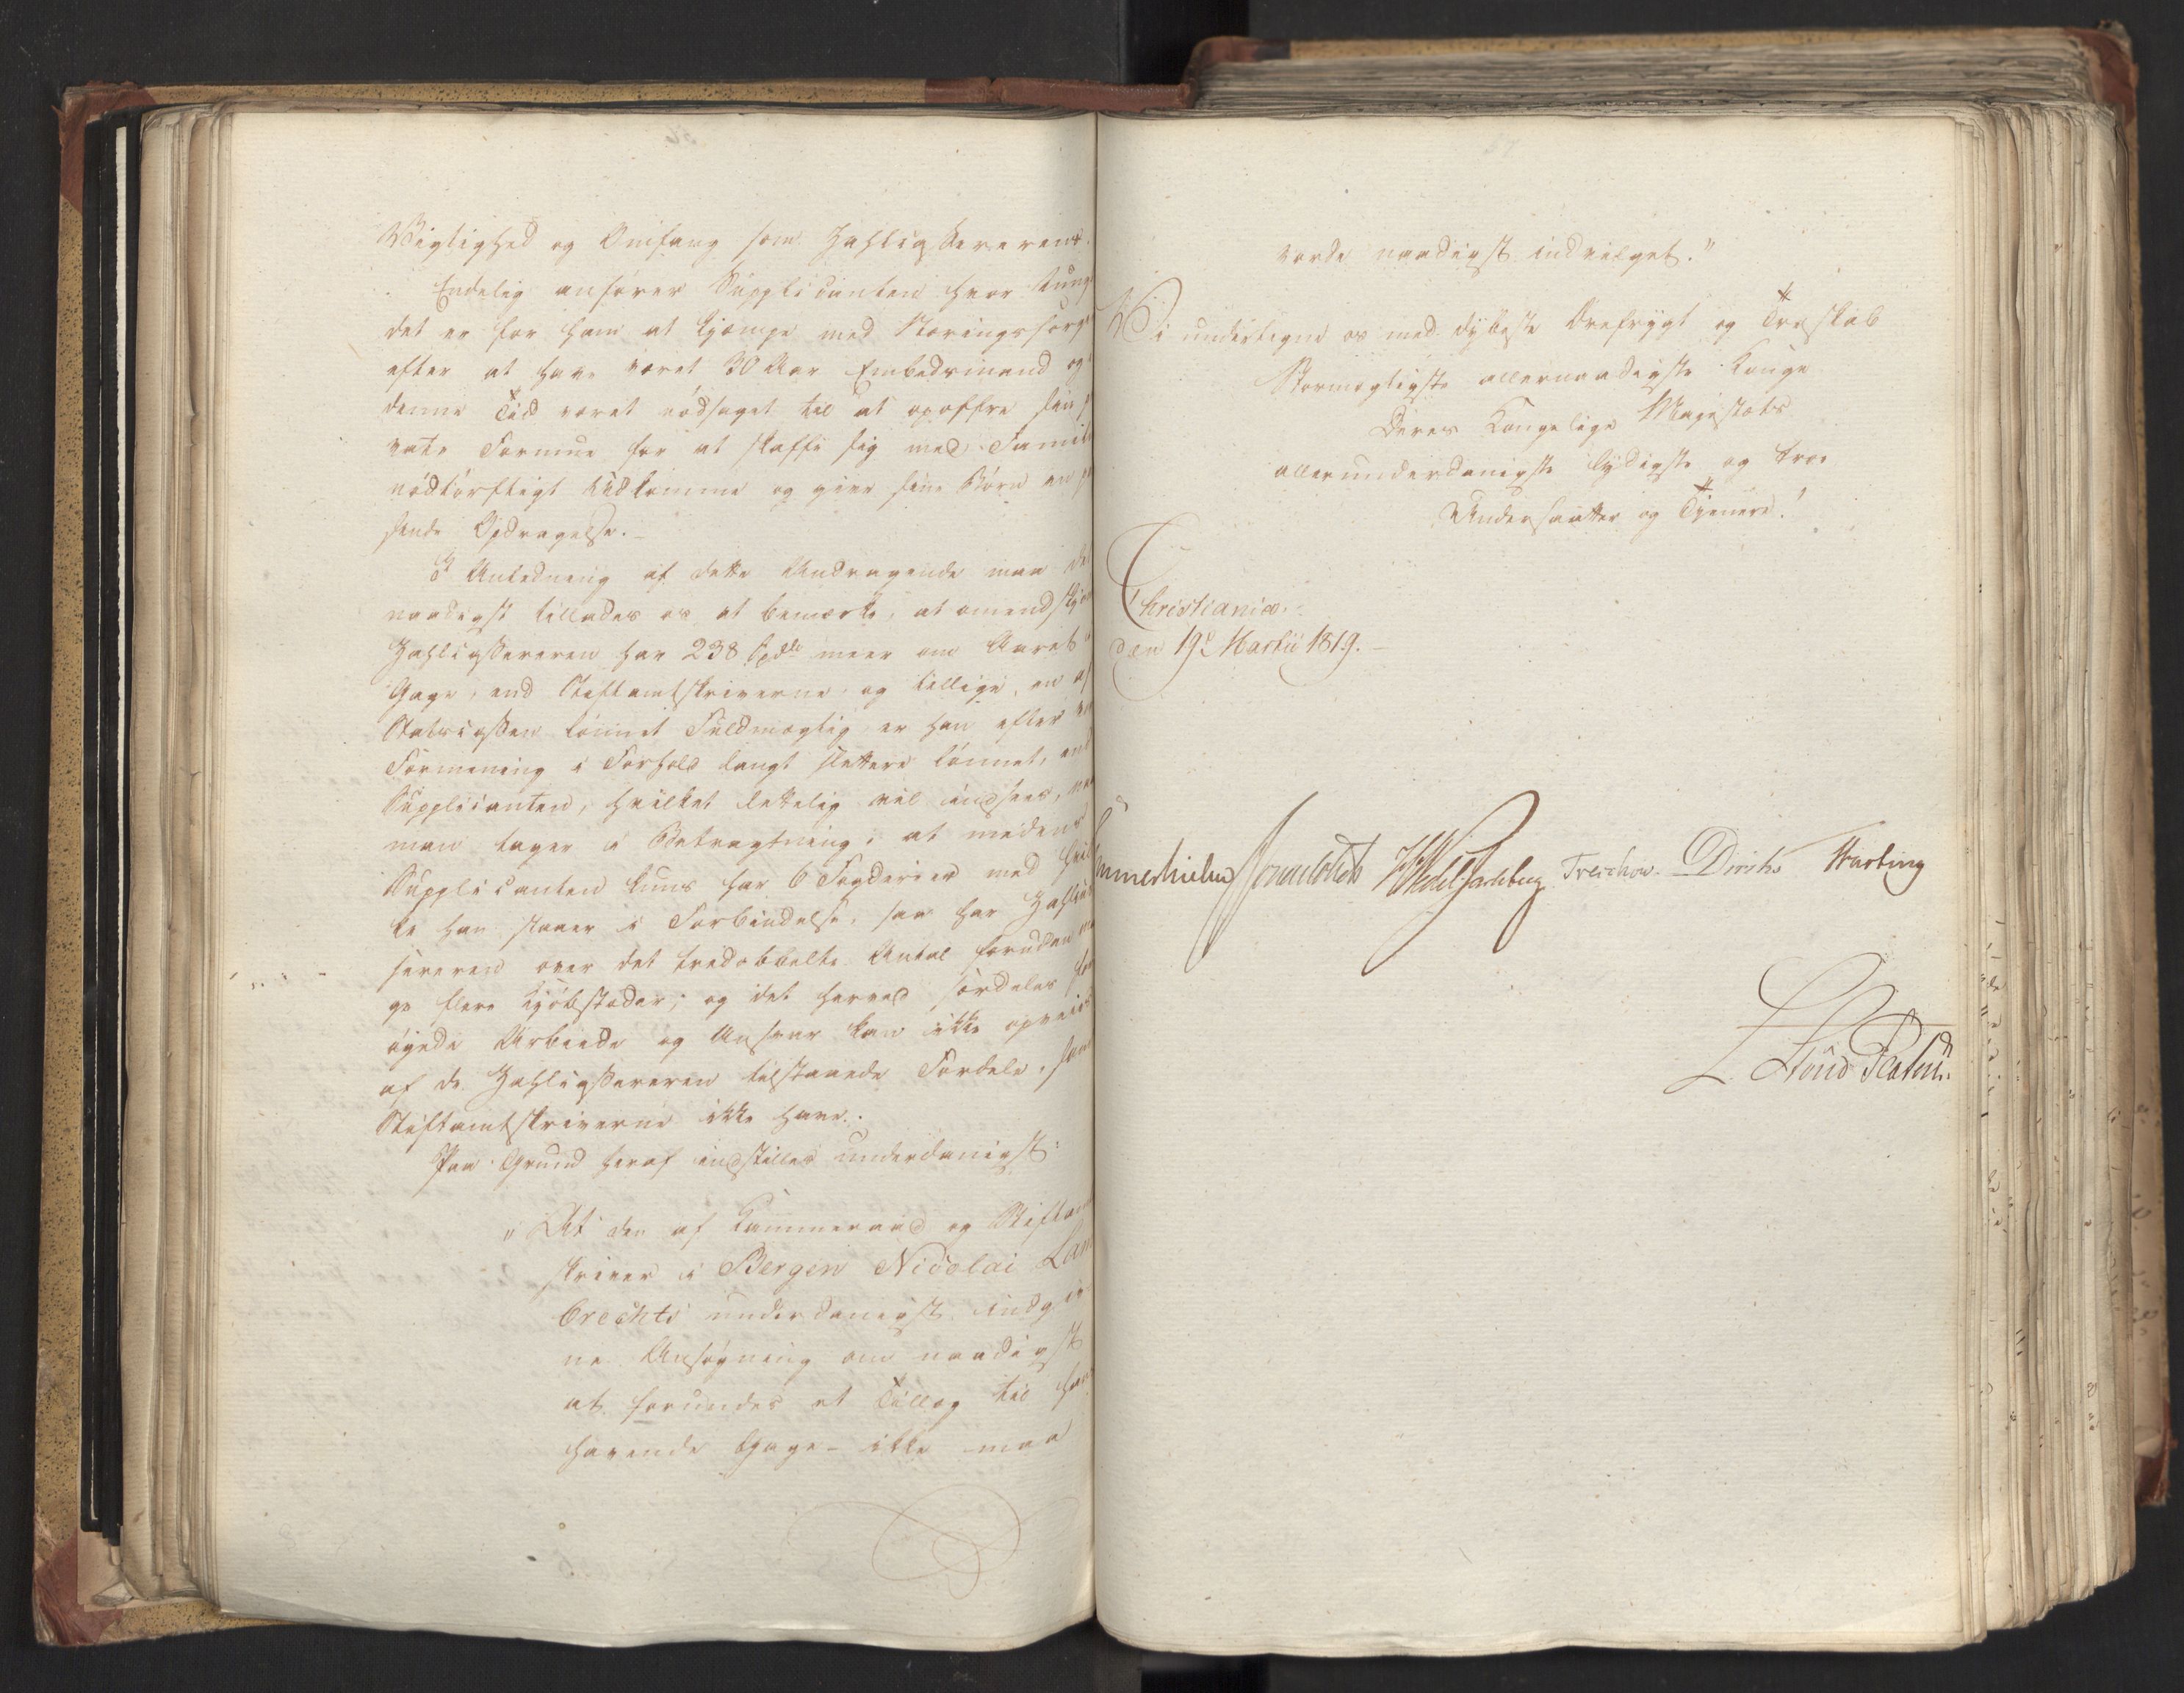 Vigtighed og Omfang som Zahlcasserens.
Endelig anfører Supplicanten hvor tungt
det er for ham at kjæmpe med Næringssorger
efter at have været 30 Aar Embedsmand og i
denne Tid været nødsaget til at opoffre sin pri
vate Formue for at skaffe sig med Familie
nødtørftigt Udkomme og give sine Børn an
stændig Opdragelse.
I Anledning af dette Andragende maa det
naadigst tillades os at bemærke, at omendskjøn
Zahlcassereren har 238 Spdlr meer om Aaret i
Gage, end Stiftamtskriverne, og tillige, en af
Statscassen lønnet Fuldmægtig, er han efter vor
Formening i Forhold langt slettere lønnet, end
Supplicanten, hvilket lettelig vil indsees, naar
man tager i Betragtning, at medens
Supplicanten kuns har 6 Fogderier med hvil
ke han staaer i Forbindelse, saa har Zahlcas
sereren over det tredobbelte Antal foruden man
ge flere Kjøbstæder; og det herved særdeles for
øgede Arbeide og Ansvar kan ikke opveies
af de Zahlcassereren tilstaaede Fordele, som
Stiftamtskriverne ikke have.
Paa Grund heraf indstilles underdanigst:
"At den af Kammerraad og Stiftamt
skriver i Bergen Nicolai Lam
brechts underdanigst indgiv
ne Ansøgning om naadigst
at forundes et Tillæg til hans
havende Gage - ikke maa
vorde naadigst indvilget."
Vi undertegne os med dybeste Ærefrygt og Troskab
Stormægtigste allernaadigste Konge
Deres Kongelige Majestæts
allerunderdanigste lydigste og troe
Undersaatter og Tjenere!
Christiania
den 19de Martii 1819.
Sommerhielm Jonas Collett HWedel Jarlsberg Treschow Diriks Fasting
L. Stoud Platou